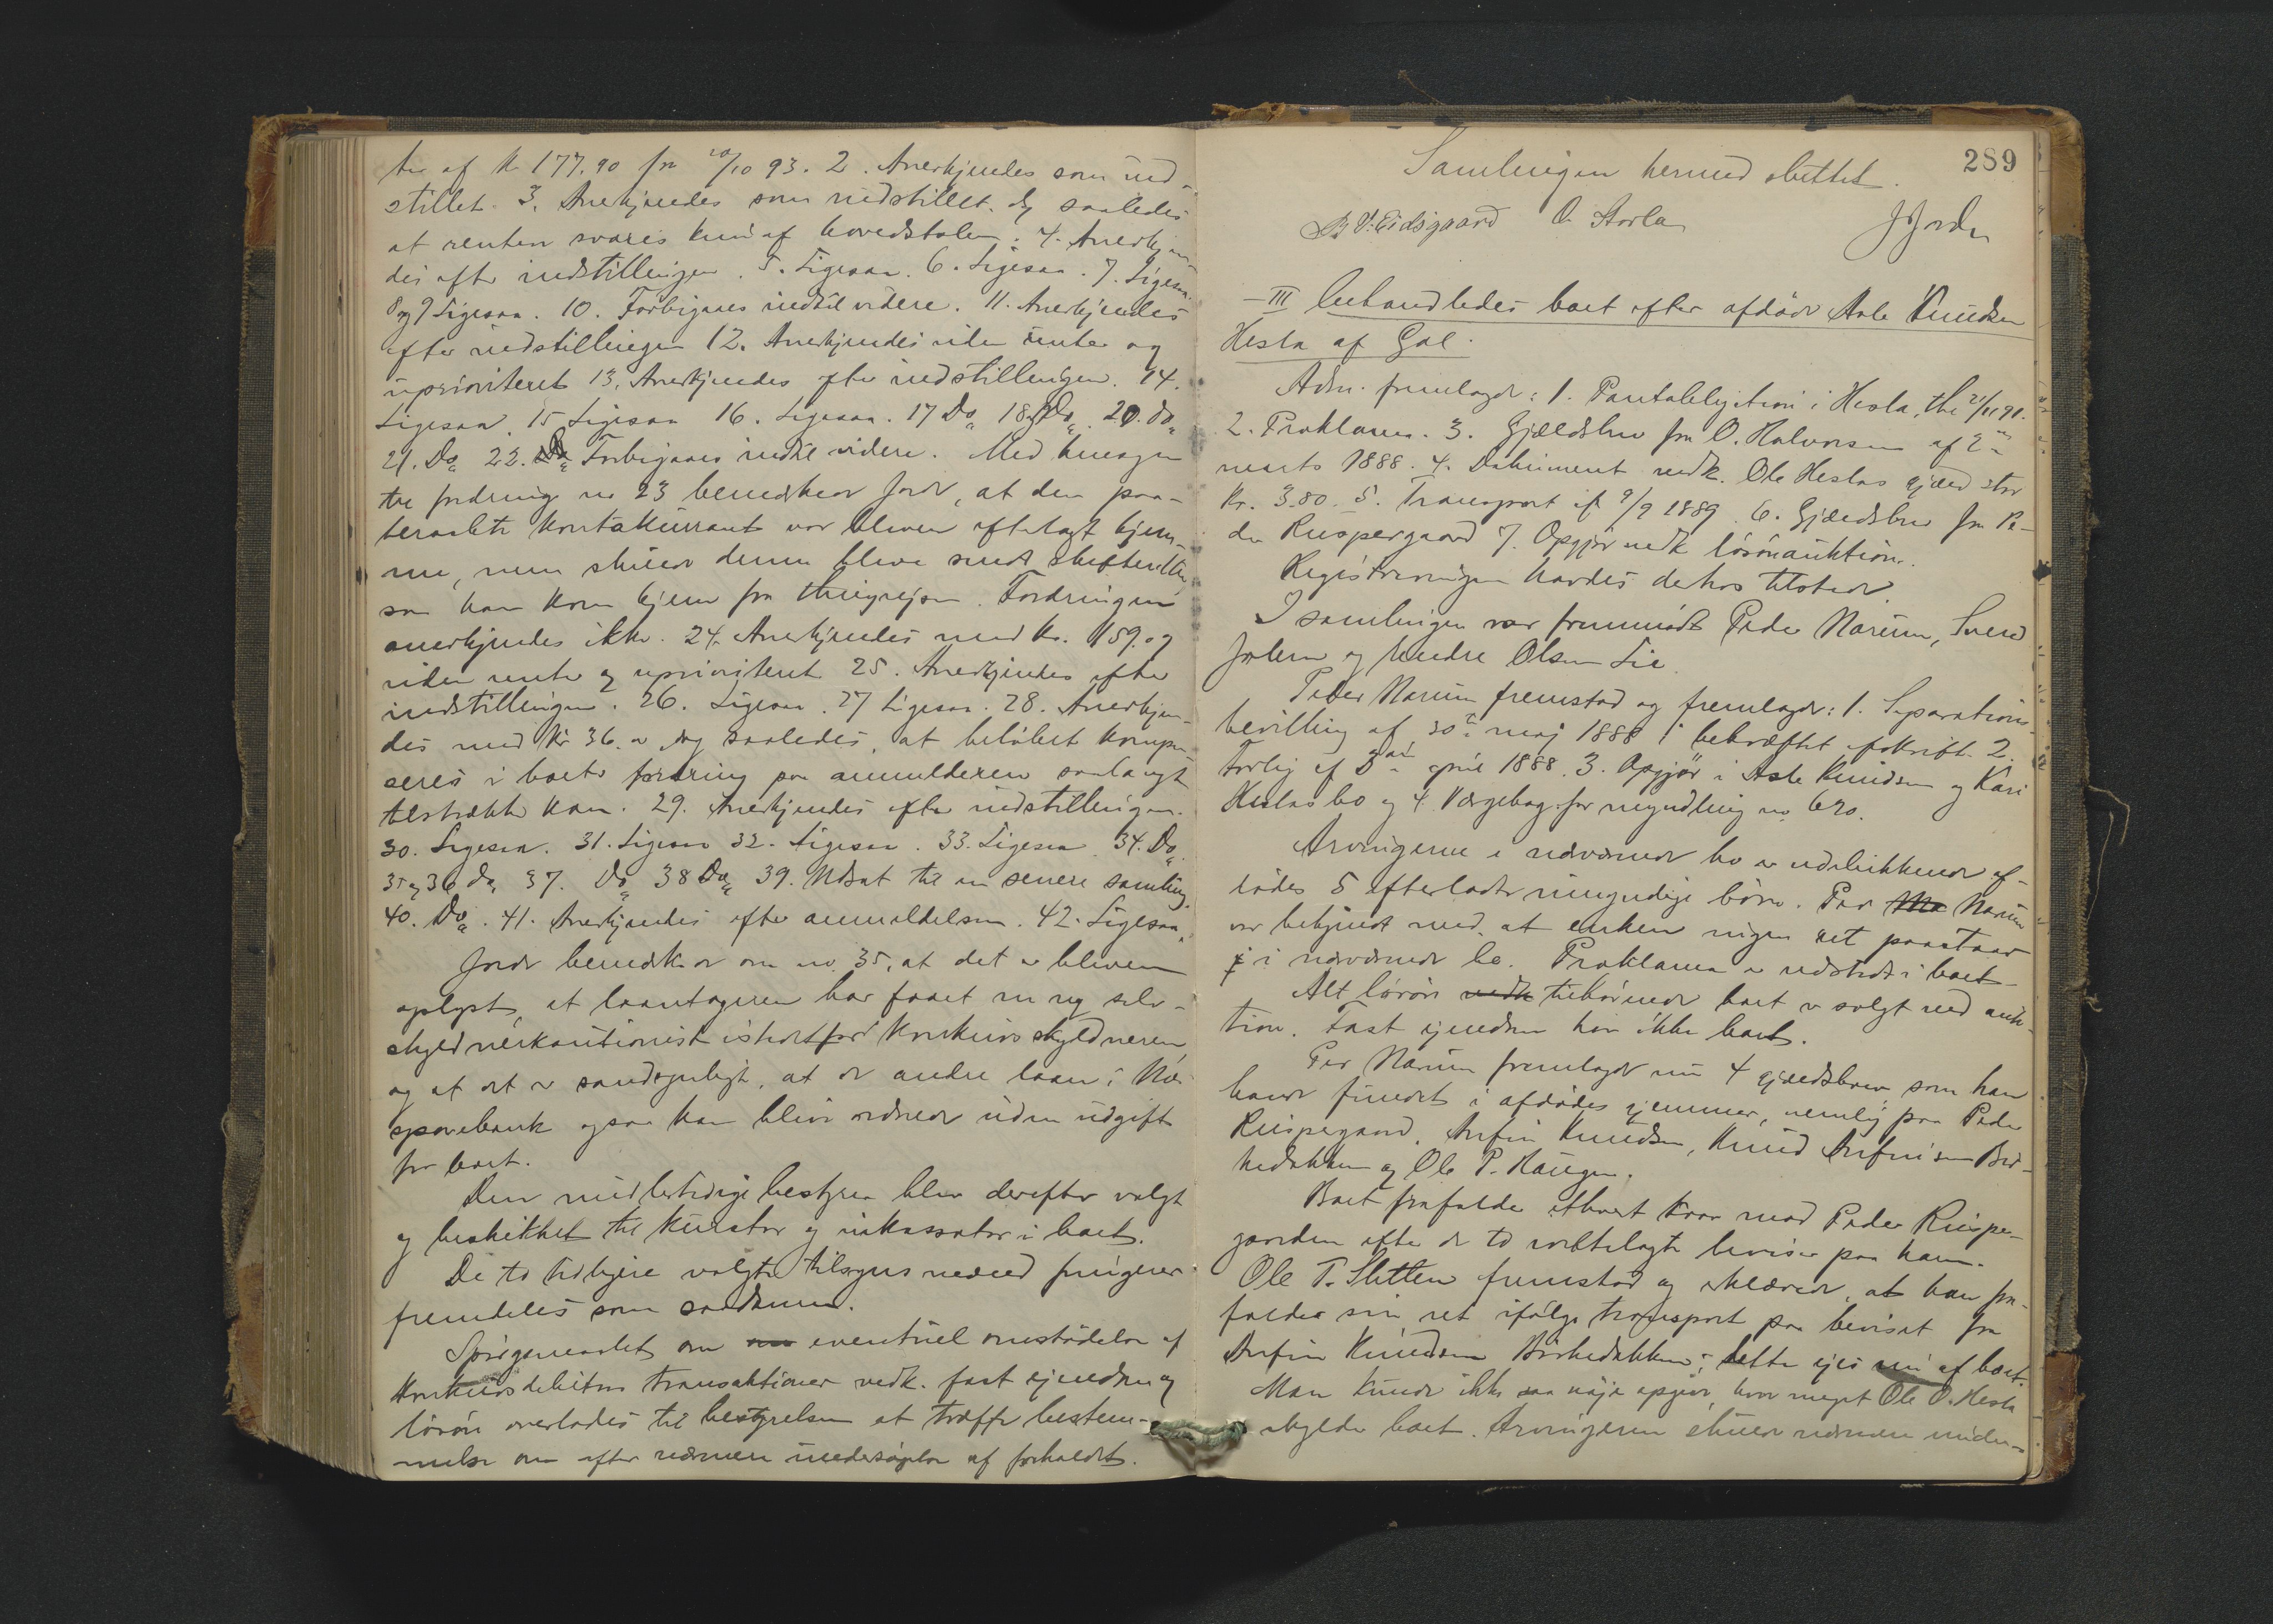 ter af Kr 177.90 fra 20/10 93. 2. Anerkjendes som ind-
stillet. 3. Anerkjendes som indstillet, dog saaledes
at renten svares kun af hovedstolen. 4. Anerkjen-
des efter indstillingen. 5. Ligesaa. 6. Ligesaa. 7. Ligesaa.
8 og 9 Ligesaa. 10. Forbigaaes indtil videre. 11. Anerkjendes
efter indstillingen 12. Anerkjendes uden renter og
uprioriteret 13. Anerkjendes efter indstillingen. 14.
Ligesaa. 15 Ligesaa 16. Ligesaa. 17 Do 18 og 19 Do. 20. do
21. Do 22. Do Forbigaaes indtil videre. Med hensyn
til fordring no 23 bemerkede Jorde, at den paa-
beraabte kontakurant var bleven efterlagt hjem-
me, men skulde denne blive sendt skifteretten,
saa han kom hjem fra thingrejsen. Fordringen
anerkjendes ikke. 24. Anerkjendes med Kr. 159.07
uden renter og uprioriteret 25. Anerkjendes efter
indstillingen. 26. Ligesaa. 27 Ligesaa. 28. Anerkjen-
des med Kr 36. dog saaledes, at beløbet kompen-
seres i boets fordring paa anmelderen saalangt
tilstrække kan. 29. Anerkjendes efter indstillingen.
30. Ligesaa. 31. Ligesaa 32. Ligesaa. 33. Ligesaa. 34. Do
35 og 36 do 37. Do 38 Do 39. Udsat til en senere samling.
40. Do. 41. Anerkjendes efter anmeldelsen. 42. Ligesaa
Jorde bemerkede om no. 35, at det er bleven
oplyst, at laantageren har faaet en ny selv-
skyldnerkautionist istedetfor konkursskyldneren
og at det er sandsynligt, at de andre laan i Næs
sparebank ogsaa kan blive ordnede uden udgift
for boet.
Den midlertidige bestyrer blev derefter valgt
og beskikket til kurator og inkassator i boet.
De to tidligere valgte tilsynsmænd fungerer
fremdeles som saadanne.
Spørgsmaalet om eventuel omstødelse af
konkursdebitors transaktioner vedk. fast ejendom og
løsøre overlades til bestyrelsen at træffe bestem-
melse om efter nærmere undersøgelse af forholdet.
289
Samlingen hermed sluttet.
B. O. Eidsgaard O. Storla JJorde
III behandledes boet efter afdøde Asle Knudsen
Hesla af Gol.
Adm. fremlagde: 1. Pantobligation i Hesla, thl 21/11 91.
2. Proklama. 3. Gjældsbrev fra O. Halvorsen af 2den
marts 1888. 4. Dokument vedk. Ole Heslas gjæld stor
Kr. 380. 5. Transport af 9/9 1889. 6. Gjældsbrev fra Pe-
der Ruspergaard 7. Opgjør vedk løsøreauktion.
Registreringen havdes derhos tilstede.
I samlingen var fremmødt Peder Narum, Svend
Jobern og Endre Olsen Lie.
Peder Narum fremstod og fremlagde: 1. Separations-
bevilling af 30te maj 1888 i bekræftet afskrift. 2.
Forlig af 3die april 1888. 3. Opgjør i Asle Knudsen og Kari
Heslas bo og 4. Værgebog for myndling no. 620.
Arvingerne i nærværende bo er udelukkende af-
dødes 5 efterladte umyndige børn. Per Narum
var bekjendt med, at enken ingen ret paastaar
i nærværende bo. Proklama er udstedt i boet.
Alt løsøre tilhørende boet er solgt ved auk-
tion. Fast ejendom har ikke boet.
Per Narum fremlagde nu 4 gjældsbreve, som han
havde fundet i afdødes gjemmer, nemlig fra Peder
Ruspergaard, Arfin Knudsen, Knud Arfinsen Bir-
kedokken og Ole P. Haugen.
Boet frafalder ethvert krav mod Peder Rusper-
gaarden efter de to vedtlagte beviser paa ham.
Ole T. Sletten fremstod og erklærede, at han fra-
falder sin ret ifølge transport paa beviset fra
Arfin Knudsen Birkedokken; dette ejes nu af boet.
Man kunde ikke saa nøje opgive, hvor meget Ole O. Hesla
skylder boet. Arvingerne skulde nærmere under-